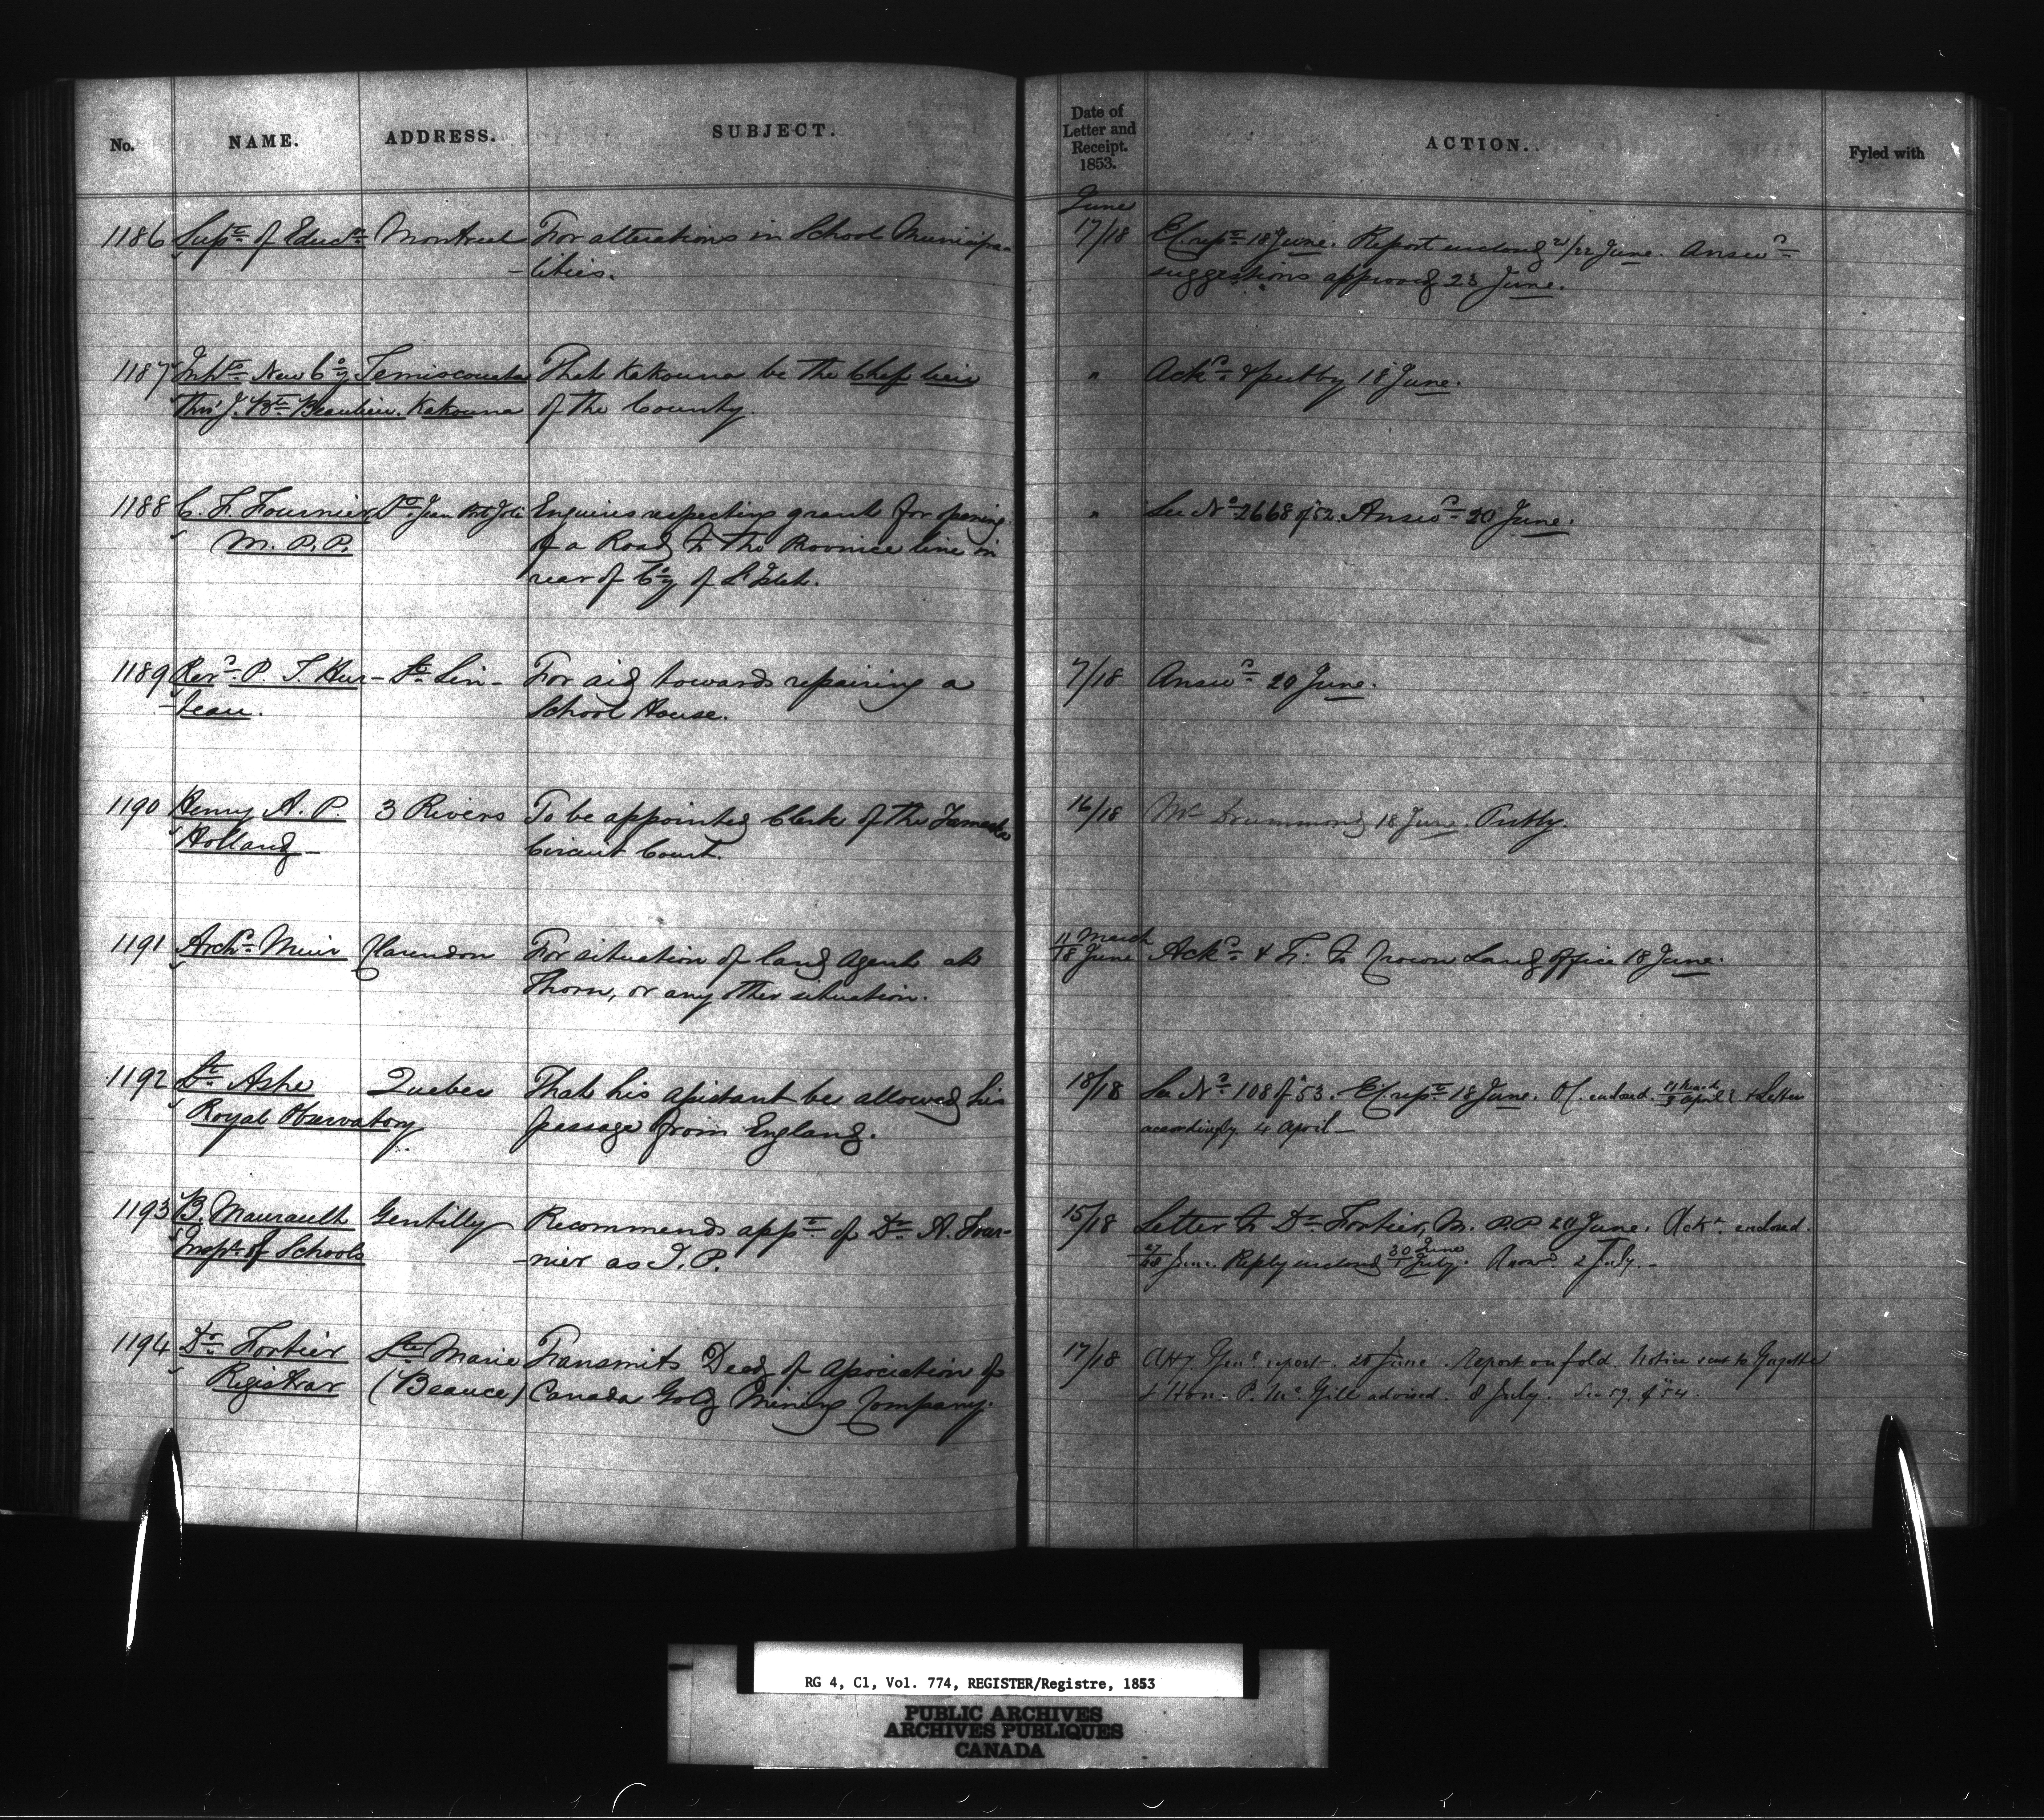 No. NAME. ADDRESS. SUBJECT. Date of Letter and Receipt. 1853. ACTION. Fyled with
June
1186 Supt. of Educn. Montreal For alterations in School Municipa- 17/18 Ex. rept. 18 June. Report enclosed 21/22 June. Answd.
-lities. suggestions approved 23 June.
1187 Inhts. New Coy. Temiscouata That Kakouna be the Chef lieu " Ackd. & put by 18 June.
Thro' J. Bte. Beaulieu. Kakouna of the County.
1188 C. F. Fournier St. Jean Port Joli Enquires respecting grant for opening " See No. 2668 of '52. Answd. 20 June.
M. P. P. of a Road to the Province line in
rear of Coy. of L'Islet.
1189 Revd. P. T. Hur- St. Lin For aid towards repairing a 7/18 Answd. 20 June.
-teau. School House.
1190 Henry A. P. 3 Rivers To be appointed Clerk of the Yamaska 16/18 Mr. Drummond 18 June. Putby.
Holland Circuit Court.
1191 Archd. Muir Clarendon For situation of land Agent at 11 March / 18 June Ackd. & Tr. to Crown Land Office 18 June.
Thorn, or any other situation.
1192 Lt. Ashe Quebec That his assistant be allowed his 18/18 See No. 108 of '53. Ex. rept. 18 June. O/C. enclosed 3 April & Letter
Royal Observatory passage from England. accordingly 4 April
1193 B. Maurault Gentilly Recommends appt. of Dr. A. Four- 15/18 Letter to Dr. Fortier, M. P. P. 20 June. Ackt. enclosed.
Inspr. of Schools -nier as J. P. 27/28 June. Reply enclosed 30 June / 1 July. 2 July.
1194 Dr. Fortier Ste. Marie Transmits Deed of Association of 17/18 Atty. Genl. report. 20 June. Report on fold. Notice sent to Gazette
Registrar (Beauce) Canada Gold Mining Company. & Hon. P. McGill advised. 8 July. See 59. of '54.
RG 4, C1, Vol. 774, REGISTER/Registre, 1853
PUBLIC ARCHIVES
ARCHIVES PUBLIQUES
CANADA